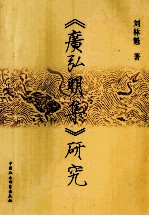 《廣弘明集》研究
刘林魁 著
中国社会科学出版社